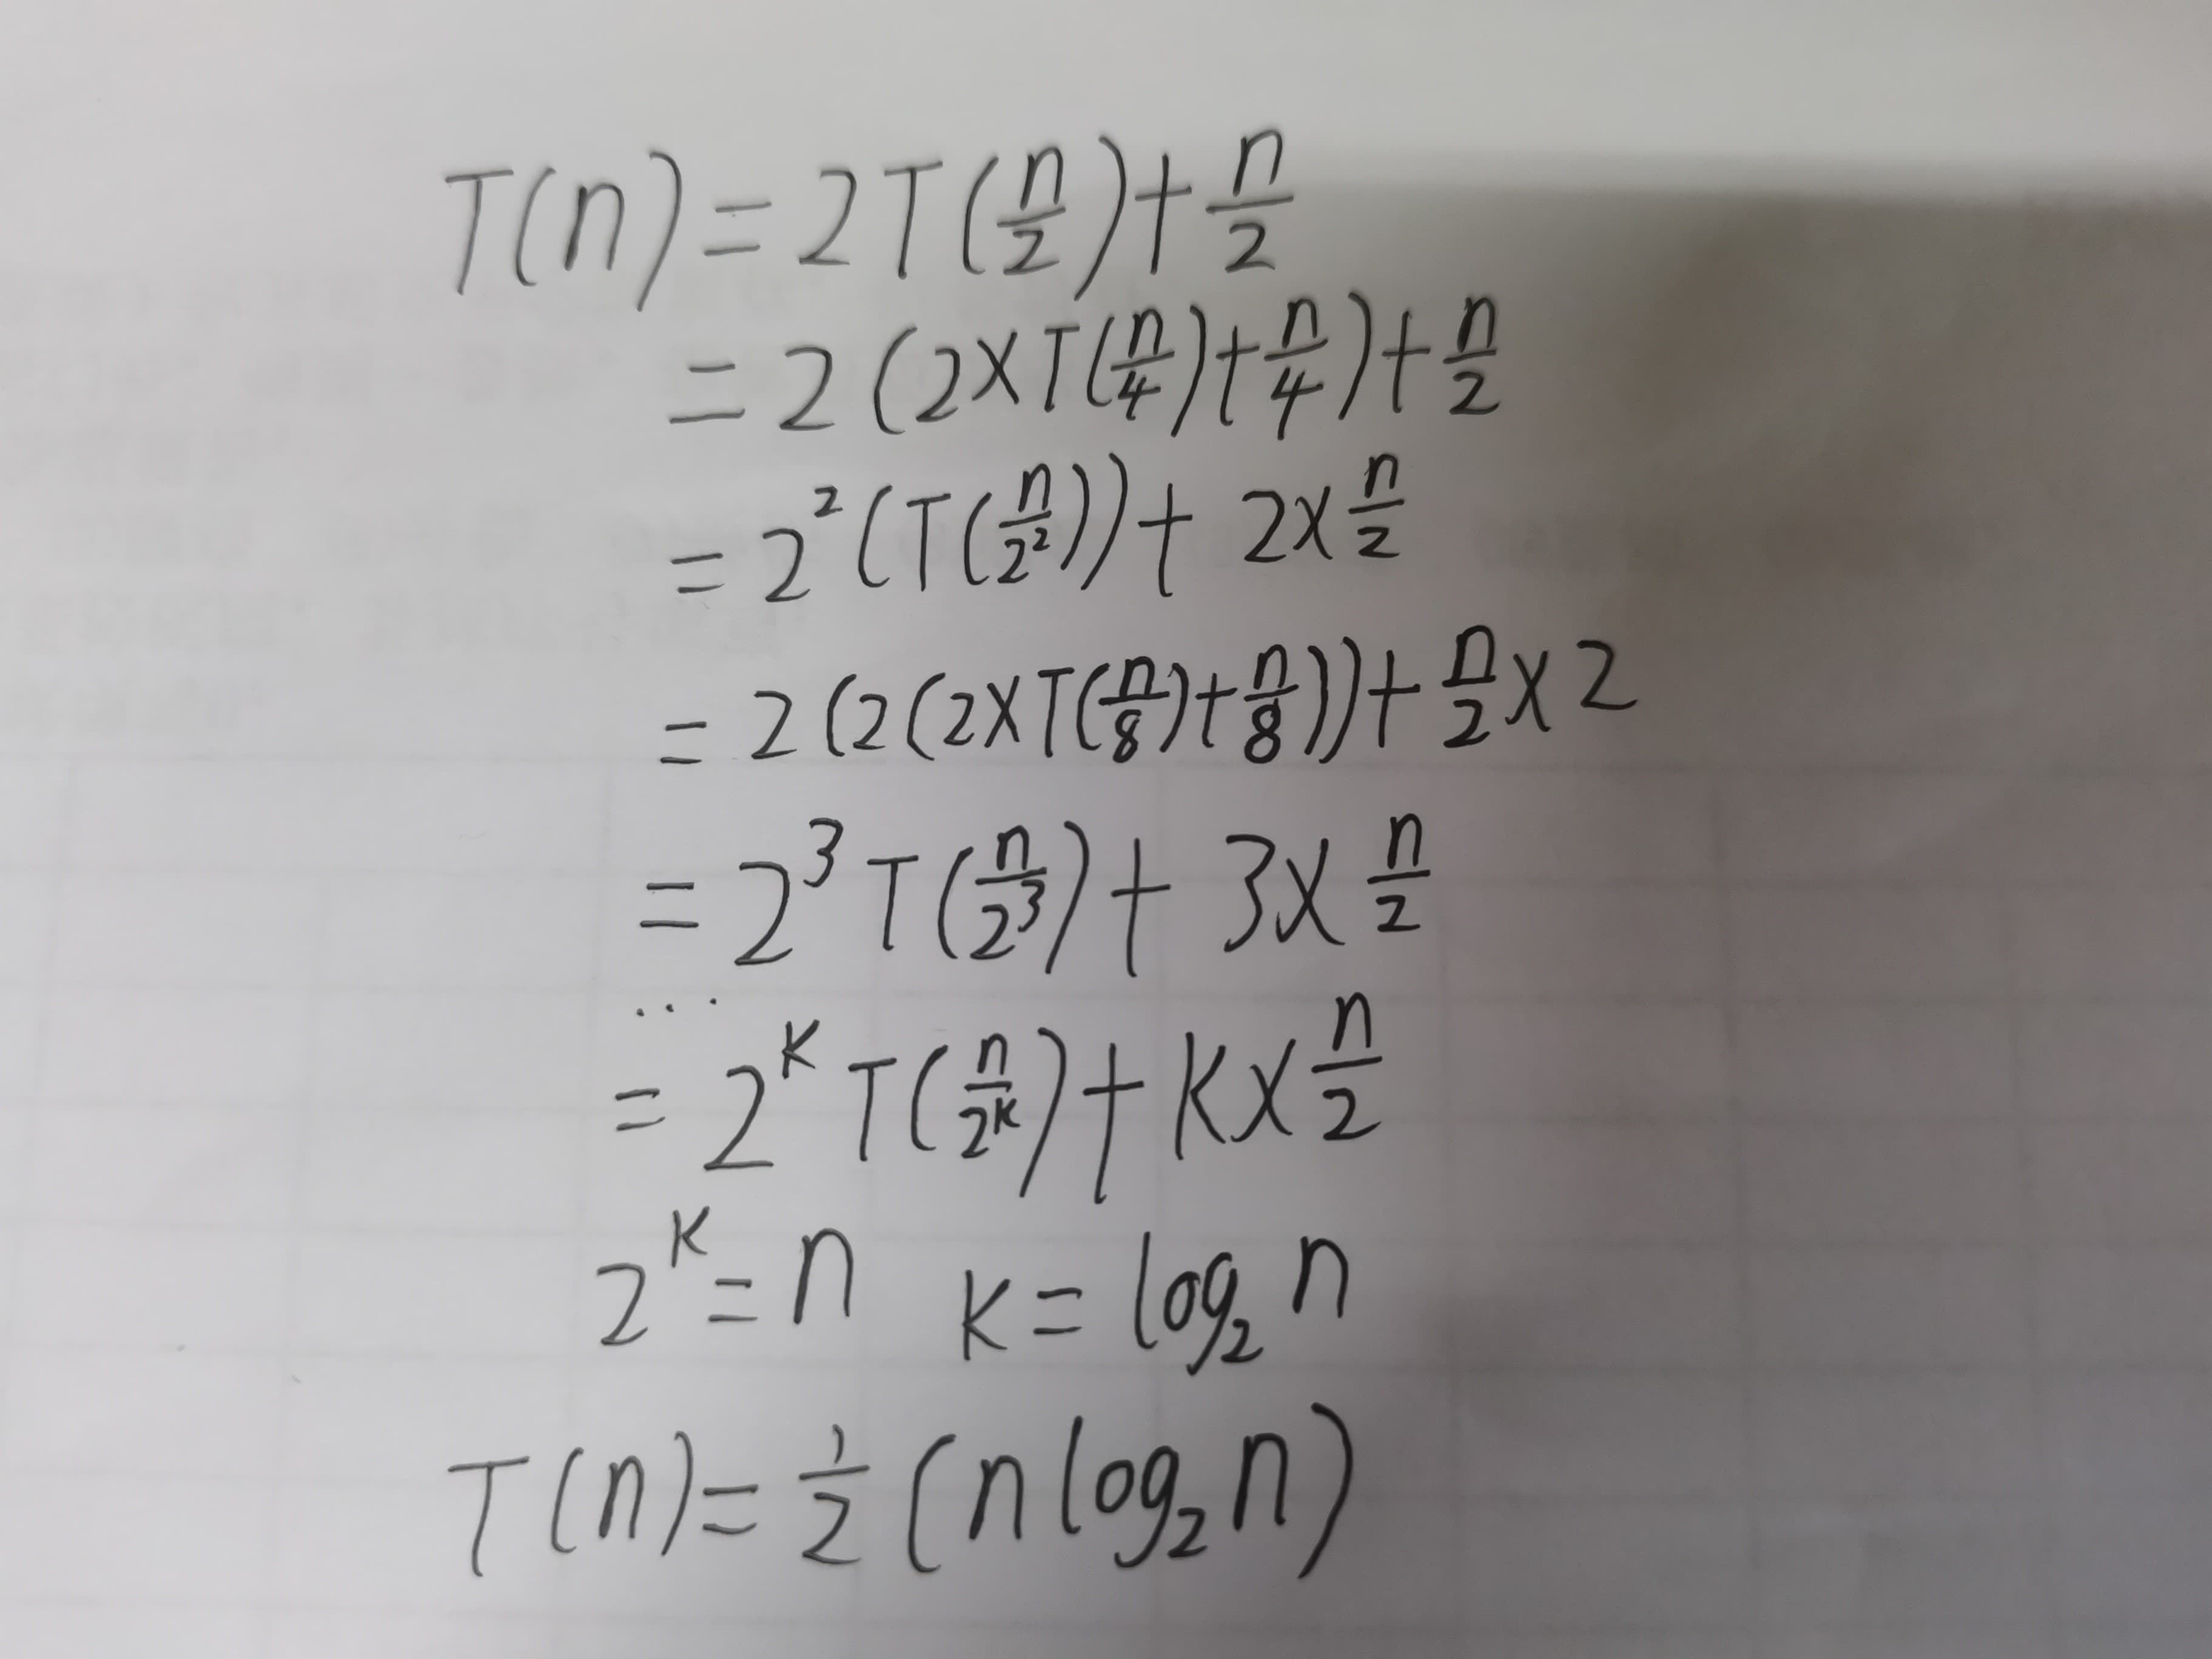 T(n) = 2T(n/2) + n/2
= 2(2×T(n/4) + n/4) + n/2
= 2²(T(n/2²)) + 2×n/2
= 2(2(2×T(n/8) + n/8)) + n/2×2
= 2³T(n/2³) + 3×n/2
...
= 2^K T(n/2^K) + K×n/2
2^K = n K = log₂n
T(n) = 1/2(n log₂n)